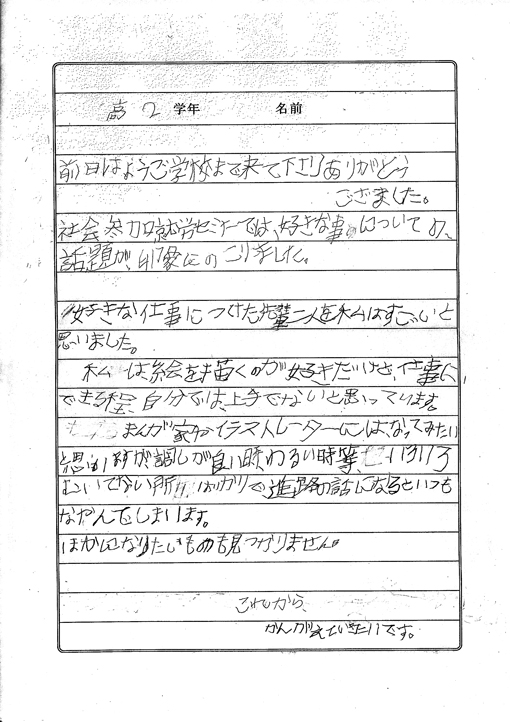 高 2 学年 名前
前日はようご学校まで来て下さりありがとう
ございました。
社会参加就労セミナーでは、好きな事についての、
話題が、印象にのこりました。
好きな仕事につけた先輩二人を私はすごいと
思いました。
私は絵を描くのが好きだけど、仕事に
できる程、自分では、上手でないと思っています。
まんが家やイラストレーターには、なってみたい
と思いますが、調しが良い時わるい時等、
ないで 所 ばかりで進路の話になるといつも
なやんでしまいます。
ほかになりたいものも見つかりません。
これから、
かんがえていきたいです。